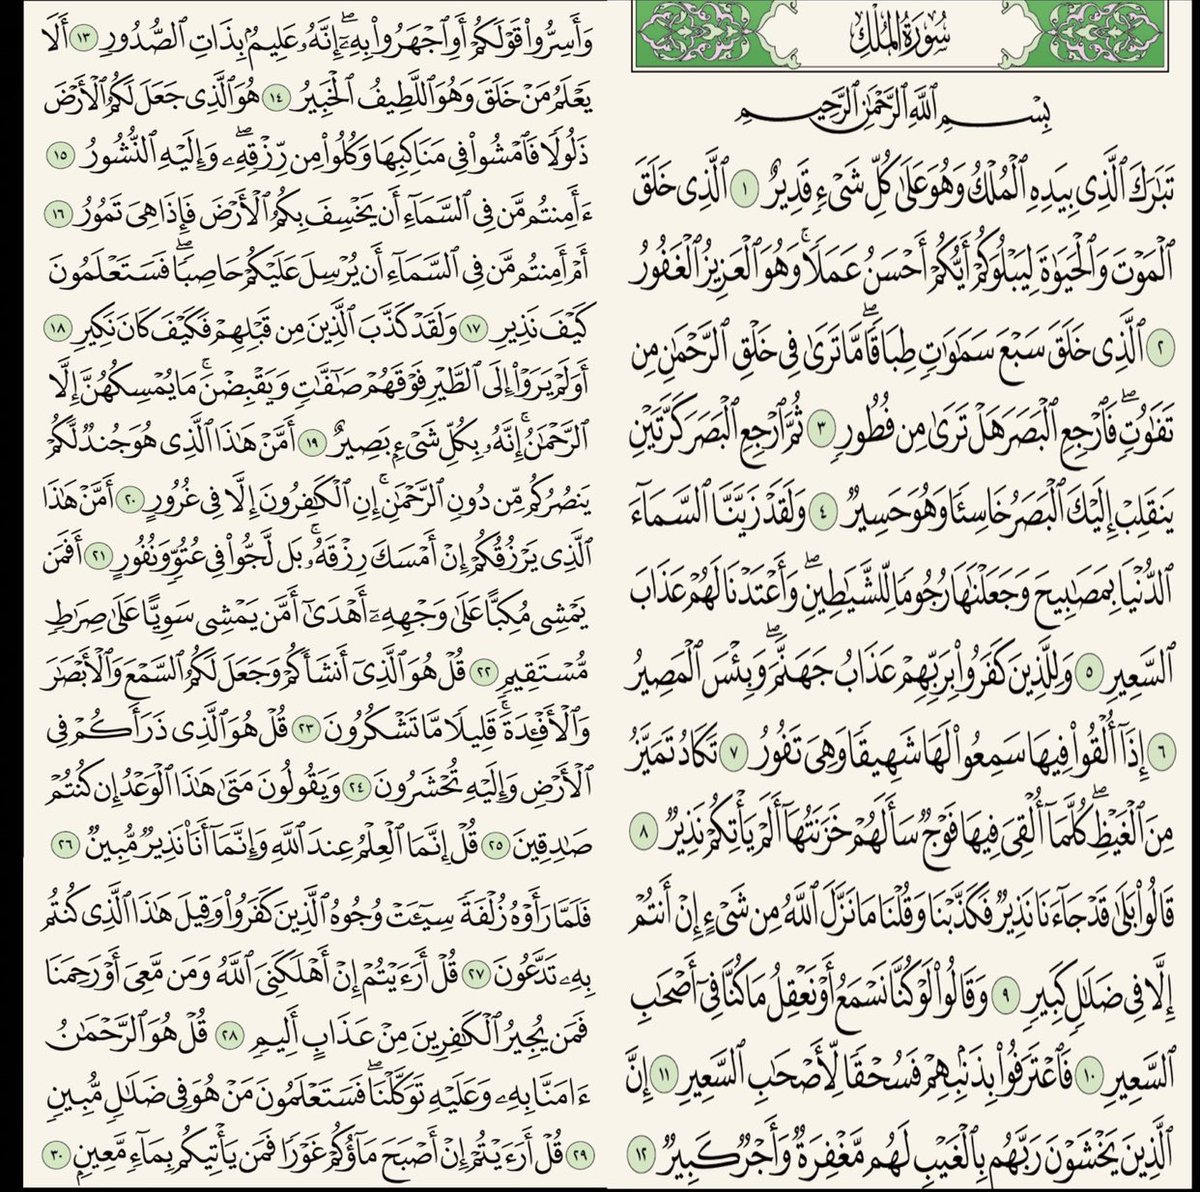 سُورَةُ المُلْكِ
بِسْمِ ٱللَّهِ ٱلرَّحْمَٰنِ ٱلرَّحِيمِ
تَبَٰرَكَ ٱلَّذِى بِيَدِهِ ٱلْمُلْكُ وَهُوَ عَلَىٰ كُلِّ شَىْءٍ قَدِيرٌ ١ ٱلَّذِى خَلَقَ
ٱلْمَوْتَ وَٱلْحَيَوٰةَ لِيَبْلُوَكُمْ أَيُّكُمْ أَحْسَنُ عَمَلًا ۚ وَهُوَ ٱلْعَزِيزُ ٱلْغَفُورُ
٢ ٱلَّذِى خَلَقَ سَبْعَ سَمَٰوَٰتٍ طِبَاقًا ۖ مَّا تَرَىٰ فِى خَلْقِ ٱلرَّحْمَٰنِ مِن
تَفَٰوُتٍ ۖ فَٱرْجِعِ ٱلْبَصَرَ هَلْ تَرَىٰ مِن فُطُورٍ ٣ ثُمَّ ٱرْجِعِ ٱلْبَصَرَ كَرَّتَيْنِ
يَنقَلِبْ إِلَيْكَ ٱلْبَصَرُ خَاسِئًا وَهُوَ حَسِيرٌ ٤ وَلَقَدْ زَيَّنَّا ٱلسَّمَآءَ
ٱلدُّنْيَا بِمَصَٰبِيحَ وَجَعَلْنَٰهَا رُجُومًا لِّلشَّيَٰطِينِ ۖ وَأَعْتَدْنَا لَهُمْ عَذَابَ
ٱلسَّعِيرِ ٥ وَلِلَّذِينَ كَفَرُوا۟ بِرَبِّهِمْ عَذَابُ جَهَنَّمَ ۖ وَبِئْسَ ٱلْمَصِيرُ
٦ إِذَآ أُلْقُوا۟ فِيهَا سَمِعُوا۟ لَهَا شَهِيقًا وَهِىَ تَفُورُ ٧ تَكَادُ تَمَيَّزُ
مِنَ ٱلْغَيْظِ ۖ كُلَّمَآ أُلْقِىَ فِيهَا فَوْجٌ سَأَلَهُمْ خَزَنَتُهَآ أَلَمْ يَأْتِكُمْ نَذِيرٌ ٨
قَالُوا۟ بَلَىٰ قَدْ جَآءَنَا نَذِيرٌ فَكَذَّبْنَا وَقُلْنَا مَا نَزَّلَ ٱللَّهُ مِن شَىْءٍ إِنْ أَنتُمْ
إِلَّا فِى ضَلَٰلٍ كَبِيرٍ ٩ وَقَالُوا۟ لَوْ كُنَّا نَسْمَعُ أَوْ نَعْقِلُ مَا كُنَّا فِىٓ أَصْحَٰبِ
ٱلسَّعِيرِ ١٠ فَٱعْتَرَفُوا۟ بِذَنۢبِهِمْ فَسُحْقًا لِّأَصْحَٰبِ ٱلسَّعِيرِ ١١ إِنَّ
ٱلَّذِينَ يَخْشَوْنَ رَبَّهُم بِٱلْغَيْبِ لَهُم مَّغْفِرَةٌ وَأَجْرٌ كَبِيرٌ ١٢
وَأَسِرُّوا۟ قَوْلَكُمْ أَوِ ٱجْهَرُوا۟ بِهِۦٓ ۖ إِنَّهُۥ عَلِيمٌۢ بِذَاتِ ٱلصُّدُورِ ١٣ أَلَا
يَعْلَمُ مَنْ خَلَقَ وَهُوَ ٱللَّطِيفُ ٱلْخَبِيرُ ١٤ هُوَ ٱلَّذِى جَعَلَ لَكُمُ ٱلْأَرْضَ
ذَلُولًا فَٱمْشُوا۟ فِى مَنَاكِبِهَا وَكُلُوا۟ مِن رِّزْقِهِۦ ۖ وَإِلَيْهِ ٱلنُّشُورُ ١٥
ءَأَمِنتُم مَّن فِى ٱلسَّمَآءِ أَن يَخْسِفَ بِكُمُ ٱلْأَرْضَ فَإِذَا هِىَ تَمُورُ ١٦
أَمْ أَمِنتُم مَّن فِى ٱلسَّمَآءِ أَن يُرْسِلَ عَلَيْكُمْ حَاصِبًا ۖ فَسَتَعْلَمُونَ
كَيْفَ نَذِيرِ ١٧ وَلَقَدْ كَذَّبَ ٱلَّذِينَ مِن قَبْلِهِمْ فَكَيْفَ كَانَ نَكِيرِ ١٨
أَوَلَمْ يَرَوْا۟ إِلَى ٱلطَّيْرِ فَوْقَهُمْ صَٰٓفَّٰتٍ وَيَقْبِضْنَ ۚ مَا يُمْسِكُهُنَّ إِلَّا
ٱلرَّحْمَٰنُ ۚ إِنَّهُۥ بِكُلِّ شَىْءٍۭ بَصِيرٌ ١٩ أَمَّنْ هَٰذَا ٱلَّذِى هُوَ جُندٌ لَّكُمْ
يَنصُرُكُم مِّن دُونِ ٱلرَّحْمَٰنِ ۚ إِنِ ٱلْكَٰفِرُونَ إِلَّا فِى غُرُورٍ ٢٠ أَمَّنْ هَٰذَا
ٱلَّذِى يَرْزُقُكُمْ إِنْ أَمْسَكَ رِزْقَهُۥ ۚ بَل لَّجُّوا۟ فِى عُتُوٍّ وَنُفُورٍ ٢١ أَفَمَن
يَمْشِى مُكِبًّا عَلَىٰ وَجْهِهِۦٓ أَهْدَىٰٓ أَمَّن يَمْشِى سَوِيًّا عَلَىٰ صِرَٰطٍ
مُّسْتَقِيمٍ ٢٢ قُلْ هُوَ ٱلَّذِىٓ أَنشَأَكُمْ وَجَعَلَ لَكُمُ ٱلسَّمْعَ وَٱلْأَبْصَٰرَ
وَٱلْأَفْـِٔدَةَ ۖ قَلِيلًا مَّا تَشْكُرُونَ ٢٣ قُلْ هُوَ ٱلَّذِى ذَرَأَكُمْ فِى
ٱلْأَرْضِ وَإِلَيْهِ تُحْشَرُونَ ٢٤ وَيَقُولُونَ مَتَىٰ هَٰذَا ٱلْوَعْدُ إِن كُنتُمْ
صَٰدِقِينَ ٢٥ قُلْ إِنَّمَا ٱلْعِلْمُ عِندَ ٱللَّهِ وَإِنَّمَآ أَنَا۠ نَذِيرٌ مُّبِينٌ ٢٦
فَلَمَّا رَأَوْهُ زُلْفَةً سِيٓـَٔتْ وُجُوهُ ٱلَّذِينَ كَفَرُوا۟ وَقِيلَ هَٰذَا ٱلَّذِى كُنتُم
بِهِۦ تَدَّعُونَ ٢٧ قُلْ أَرَءَيْتُمْ إِنْ أَهْلَكَنِىَ ٱللَّهُ وَمَن مَّعِىَ أَوْ رَحِمَنَا
فَمَن يُجِيرُ ٱلْكَٰفِرِينَ مِنْ عَذَابٍ أَلِيمٍ ٢٨ قُلْ هُوَ ٱلرَّحْمَٰنُ
ءَامَنَّا بِهِۦ وَعَلَيْهِ تَوَكَّلْنَا ۖ فَسَتَعْلَمُونَ مَنْ هُوَ فِى ضَلَٰلٍ مُّبِينٍ
٢٩ قُلْ أَرَءَيْتُمْ إِنْ أَصْبَحَ مَآؤُكُمْ غَوْرًا فَمَن يَأْتِيكُم بِمَآءٍ مَّعِينٍۭ ٣٠